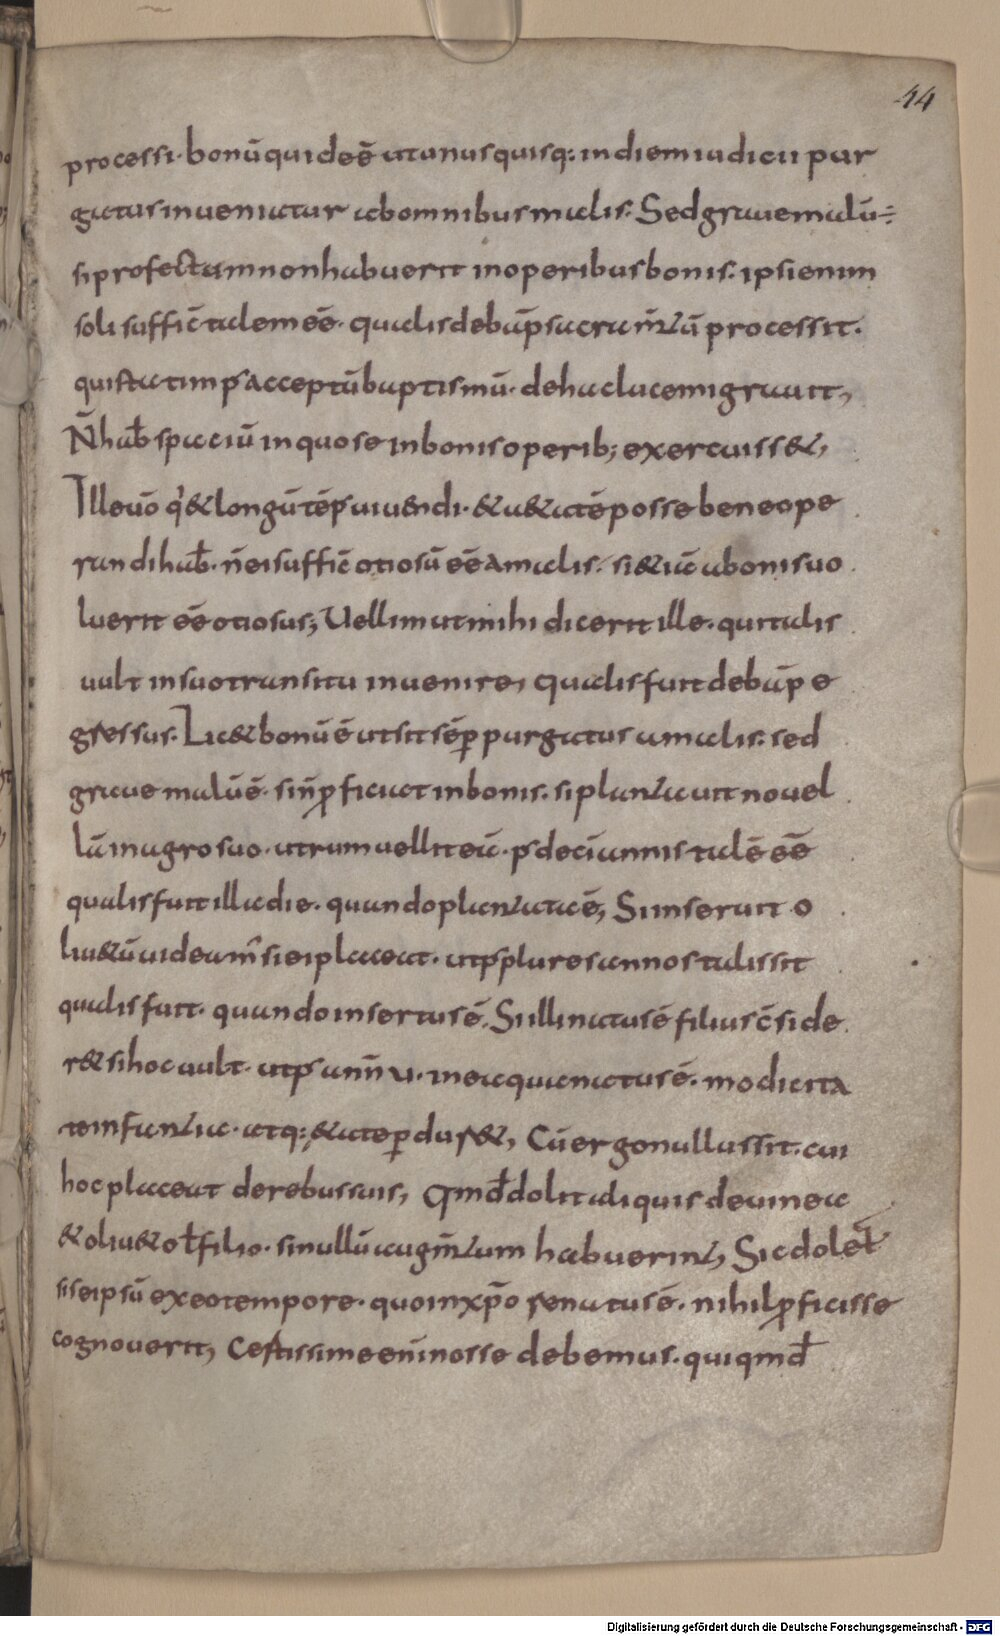 44
processi· bonū quidē ē ut unusquisq: in diem iudicii pur
gatus inueniatur ab omnibus malis. Sed graue malū ÷
si profectum non habuerit in operibus bonis. ipsi enim
soli suffic̄ talem eē· qualis de bap̄ sacram̄ta processit.
qui statim pꝰ acceptū baptismū· de hac luce migrauit,
N̄ hab̄ spaciū in quo se in bonis operib; exercuiss&,
Ille uō q' & longū tēp̄ uiuendi· & u& &atē posse bene ope
randi hab̄· n̄ ei suffic̄ otiosū eē a malis. si & iā a bonis uo
luerit eē otiosus; Uellim ut mihi dicerit ille. qui talis
uult in suo transitu inuenire, qualis fuit de bap̄ e
gressus. Lic& bonū ē ut sit sēp̄ purgatus a malis. sed
graue malū ē· si n̄ ꝓficiaet in bonis. si plantauit nouel
lā in agro suo· utrum uellit eā· pꝰ decī annis talē eē
qualis fuit illa die. quando plantata ē, Si inseruit o
liu&ū uideam̄ si ei placeat· ut pꝰ plures annos tal issit
qualis fuit· quando insertus ē. Si illi natus ē filius c̄side
r& si hoc uult· ut pꝰ ann̄ u· in ea qua natus ē· modicita
tem fantia· atq: &ate ꝑdur&, Cū ergo nullus sit. cui
hoc placeat de rebus suis, Qmd̄ dolit aliquis de uinea
& oliu& ot̄ filio· si nullū aug̃m̄tum habuerint, Sic dolet̄
si se ipsū ex eo tempore· quo in xp̄o renatus ē. nihil ꝓficisse
cognouerit, Cestissime enī nosse debemus. qui qmd̄
Digitalisierung gefördert durch die Deutsche Forschungsgemeinschaft - DFG